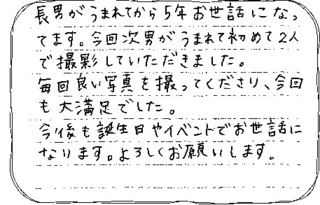 長男がうまれてから5年お世話になっ
てます。今回次男がうまれて初めて2人
で撮影していただきました。
毎回良い写真を撮ってくださり、今回
も大満足でした。
今後も誕生日やイベントでお世話に
なります。よろしくお願いします。